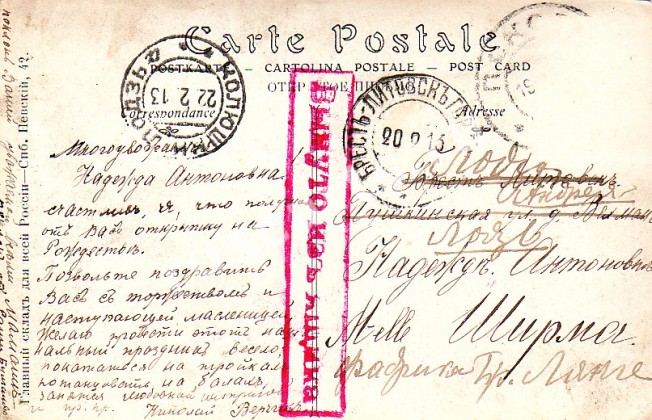 Carte Postale
POSTKARTE — CARTOLINA POSTALE — POST CARD
ОТКРЫТОЕ ПИСЬМО
Correspondance
Adresse
ЛОДЗЬ КОЛЮШКИ
22 2 13
БРЕСТЬ-ЛИТОВСКЪ
20 2 13
Вынуто изъ ящика
Главный складъ для всей Россіи—Спб. Невскій, 42.
Многоуважаемая
Надежда Антоновна!
счастливъ я, что получ
отъ Васъ открытку на
Рождество.
Позвольте поздравить
Васъ съ торжествомъ и
наступающей масленицей
Желаю провести этотъ
нальный праздникъ весело,
покататься на тройкахъ
потанцовать на балахъ,
заняться любовной интригой
и пр. пр. Николай
Лодзь
Брестъ Литовскъ
Пушкинская ул. д.
Лодзь
Надеждѣ Антоновнѣ
M-elle Ширма
Фабрика Бр. Лянге